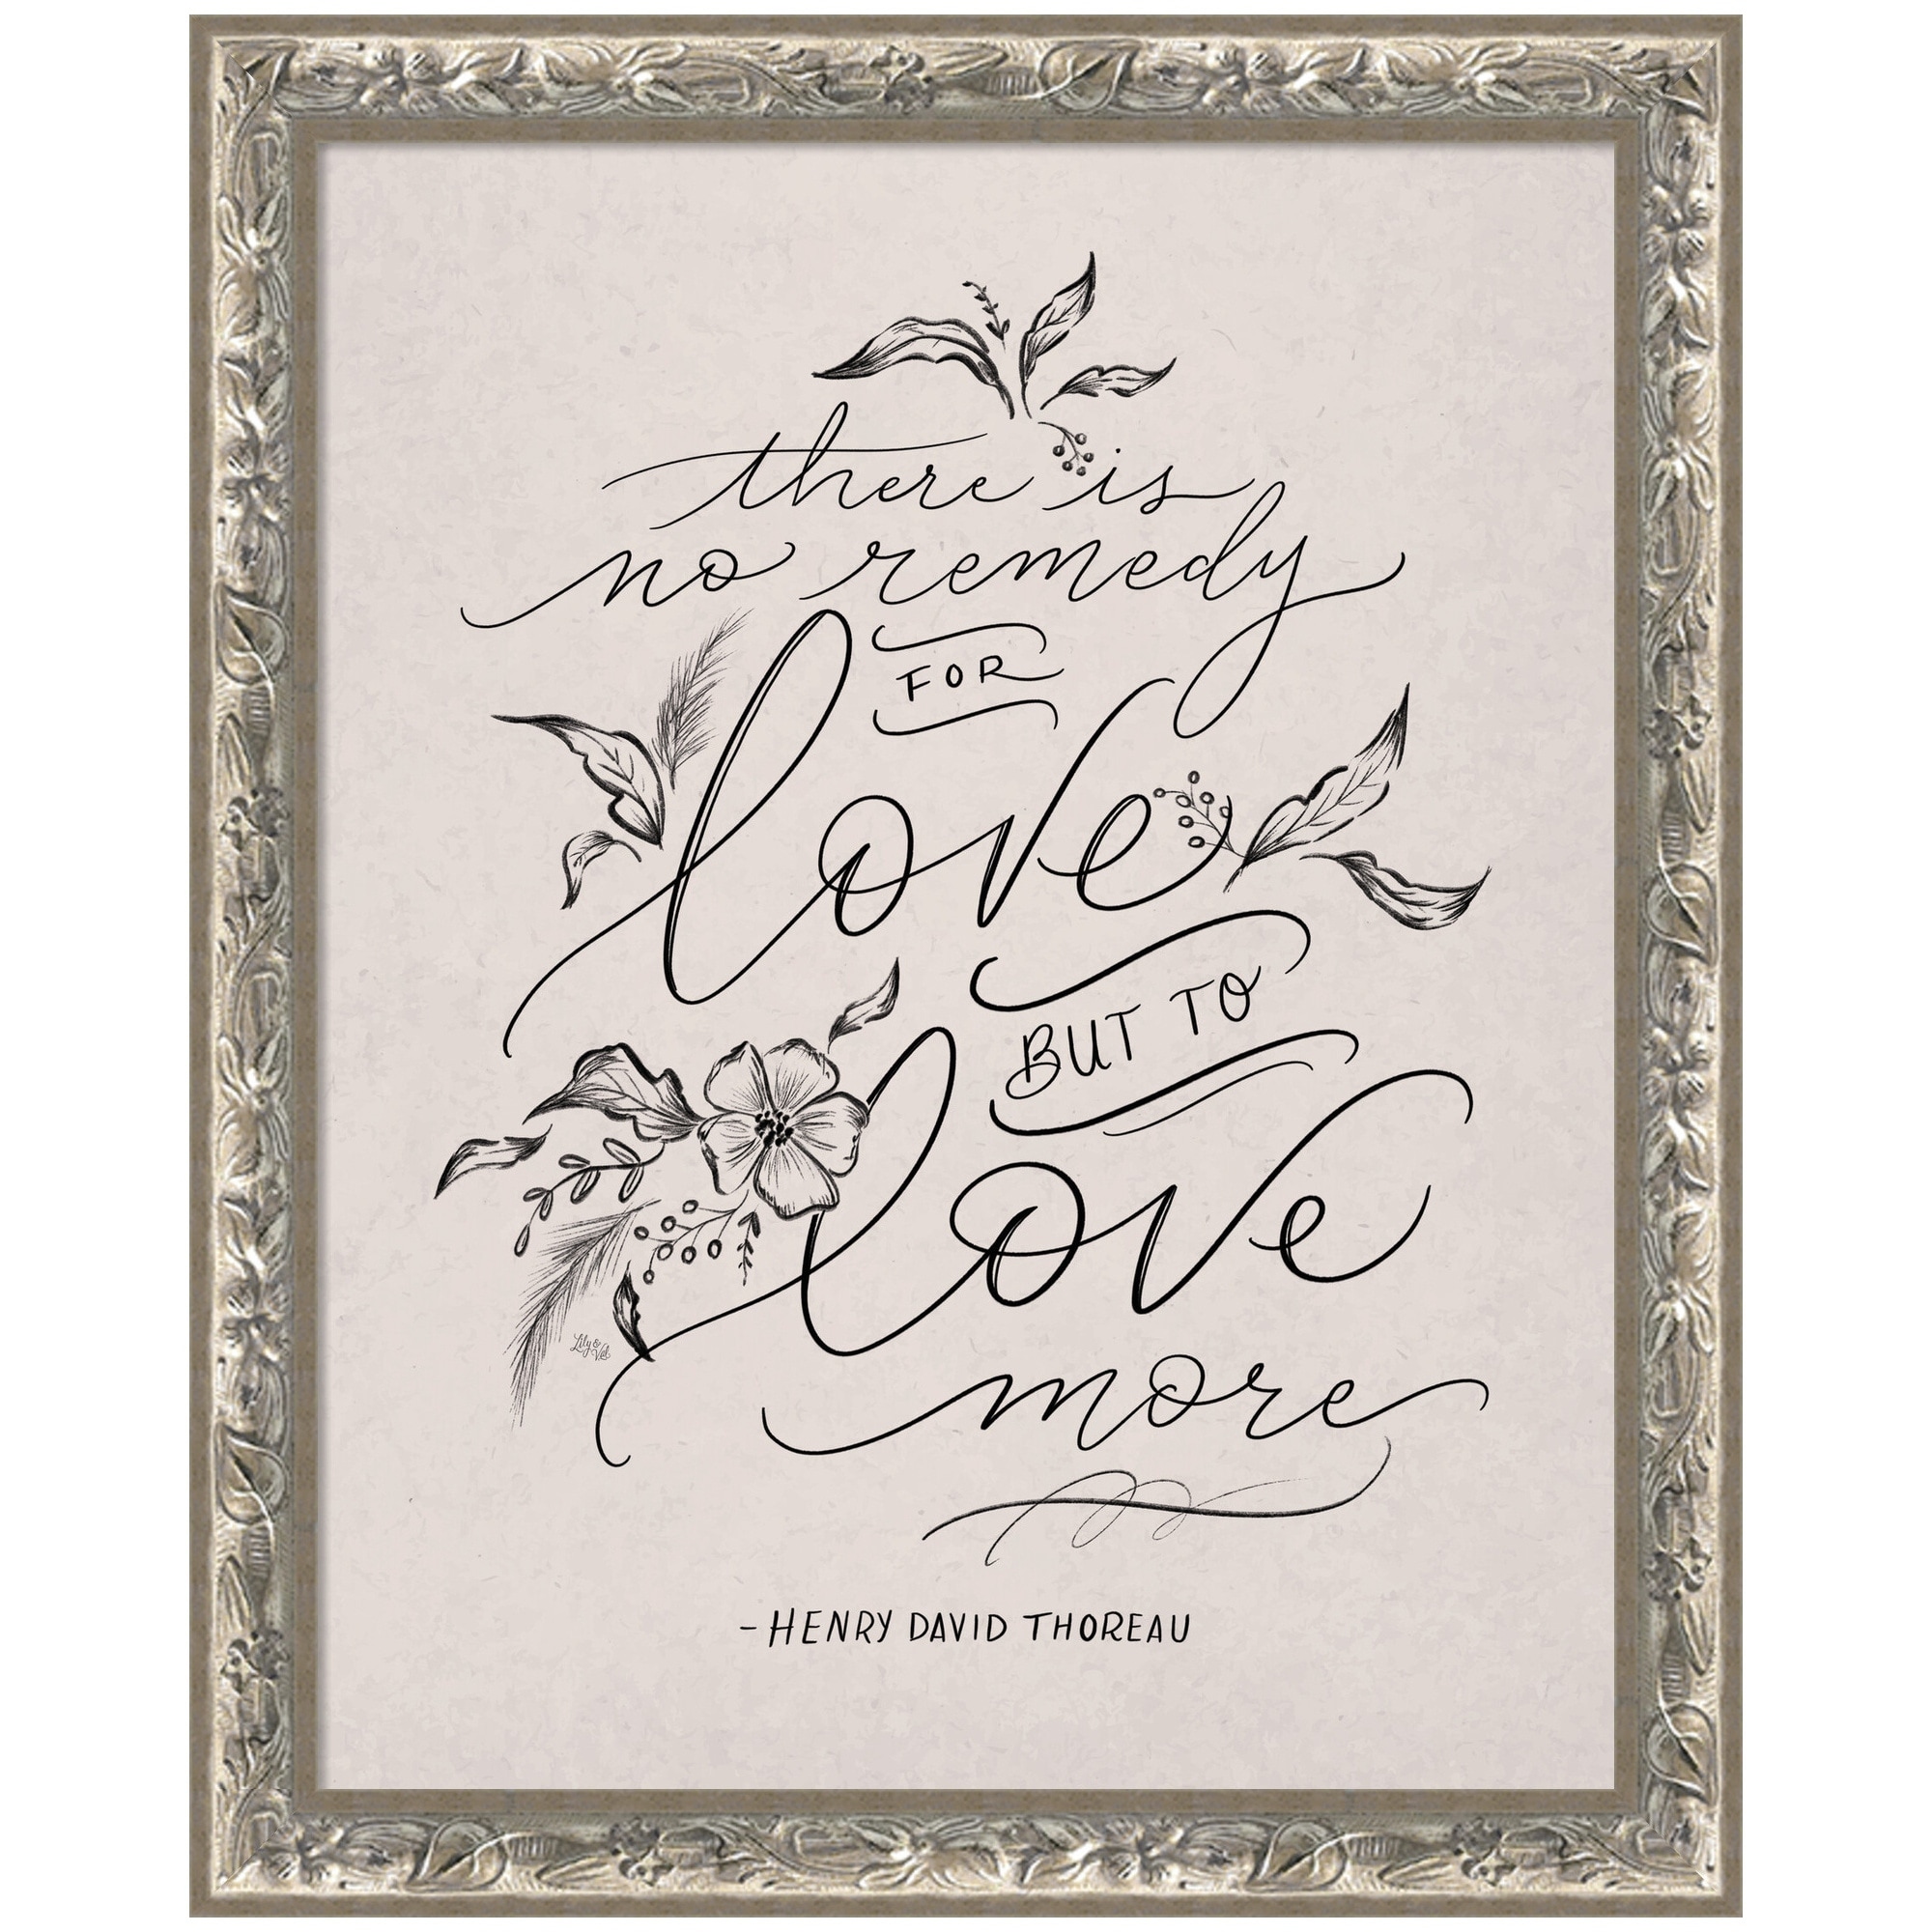 there is
no remedy
FOR
love
BUT TO
love
more
Lily & Val
-HENRY DAVID THOREAU